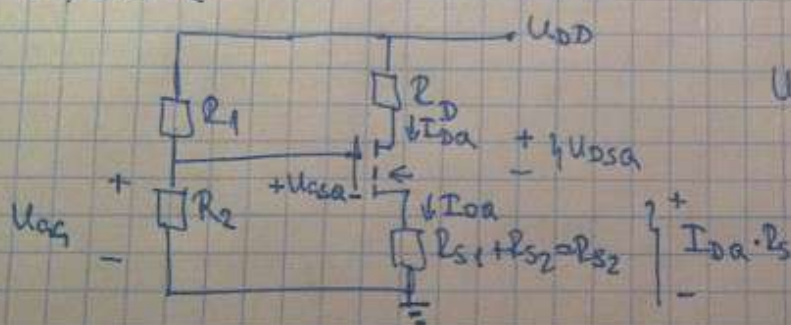 U_DD
U
R_1
R_D
↓I_DQ
+
-
U_DSQ
+
+U_GSQ-
R_2
U_GG
-
↓I_DQ
R_S1+R_S2=R_S2
+
I_DQ·R_S
-